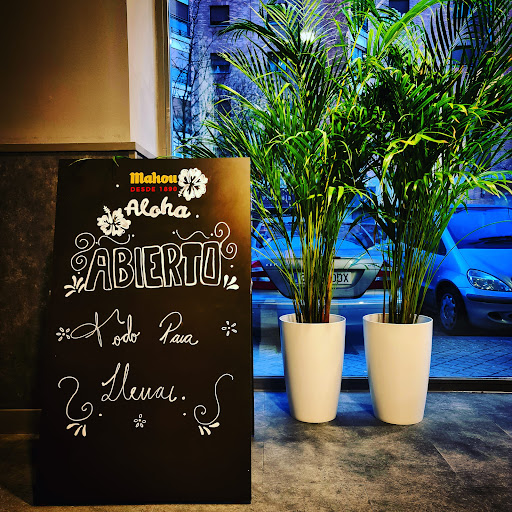 Mahou
DESDE 1890
Aloha.
ABIERTO
Todo Para
Llevar.